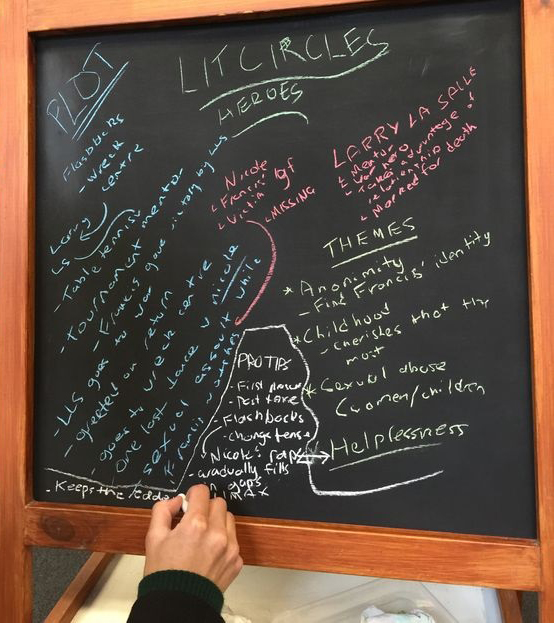 LIT CIRCLES
HEROES
PLOT
Flashbacks
- Wreck
centre
Larry
LS
- Table tennis
Tournament mentor
- Francis gave victory by LLS
- LLS goes to war
- greeted on return
- goes to wreck centre
One last dance w nicole
sexual assault while
Francis watches
Nicole
- Francis' gf
- Victim
- MISSING
LARRY LA SALLE
- Mentor
- War hero
- Takes advantage of
relationship
- Marked for death
THEMES
* Anonimity
- Find Francis' identity
* Childhood
- cherishes that the
most
* Sexual abuse
(women/children
Helplessness
PRO TIPS
- First person
- Past tense
- Flashbacks
- change tense
Nicole's rape
- gradually fills
in gaps
- Keeps the